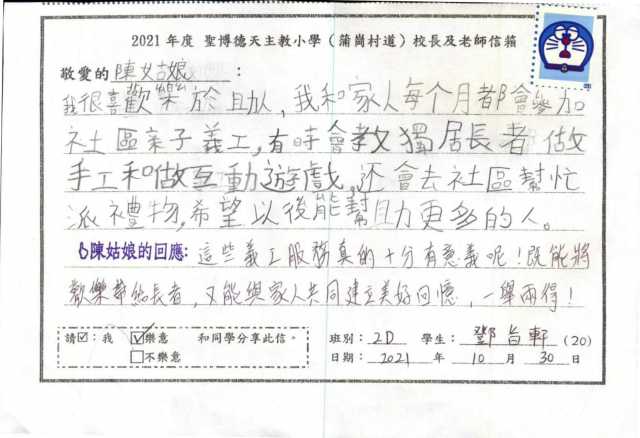 2021 年度 聖博德天主教小學（蒲崗村道）校長及老師信箱
敬愛的 陳姑娘 ：
我很喜歡樂於助人，我和家人每个月都會參加
社區亲子義工，有時會教獨居長者做
手工和做互動遊戲，还會去社區幫忙
派禮物，希望以後能幫助更多的人。
陳姑娘的回應: 這些義工服務真的十分有意義呢！既能將
歡樂帶給長者，又能與家人共同建立美好回憶，一舉兩得！
請☑：我 ☑樂意 和同學分享此信。 班別：2D 學生：鄧旨軒 (20)
□不樂意 日期：2021 年 10 月 30 日